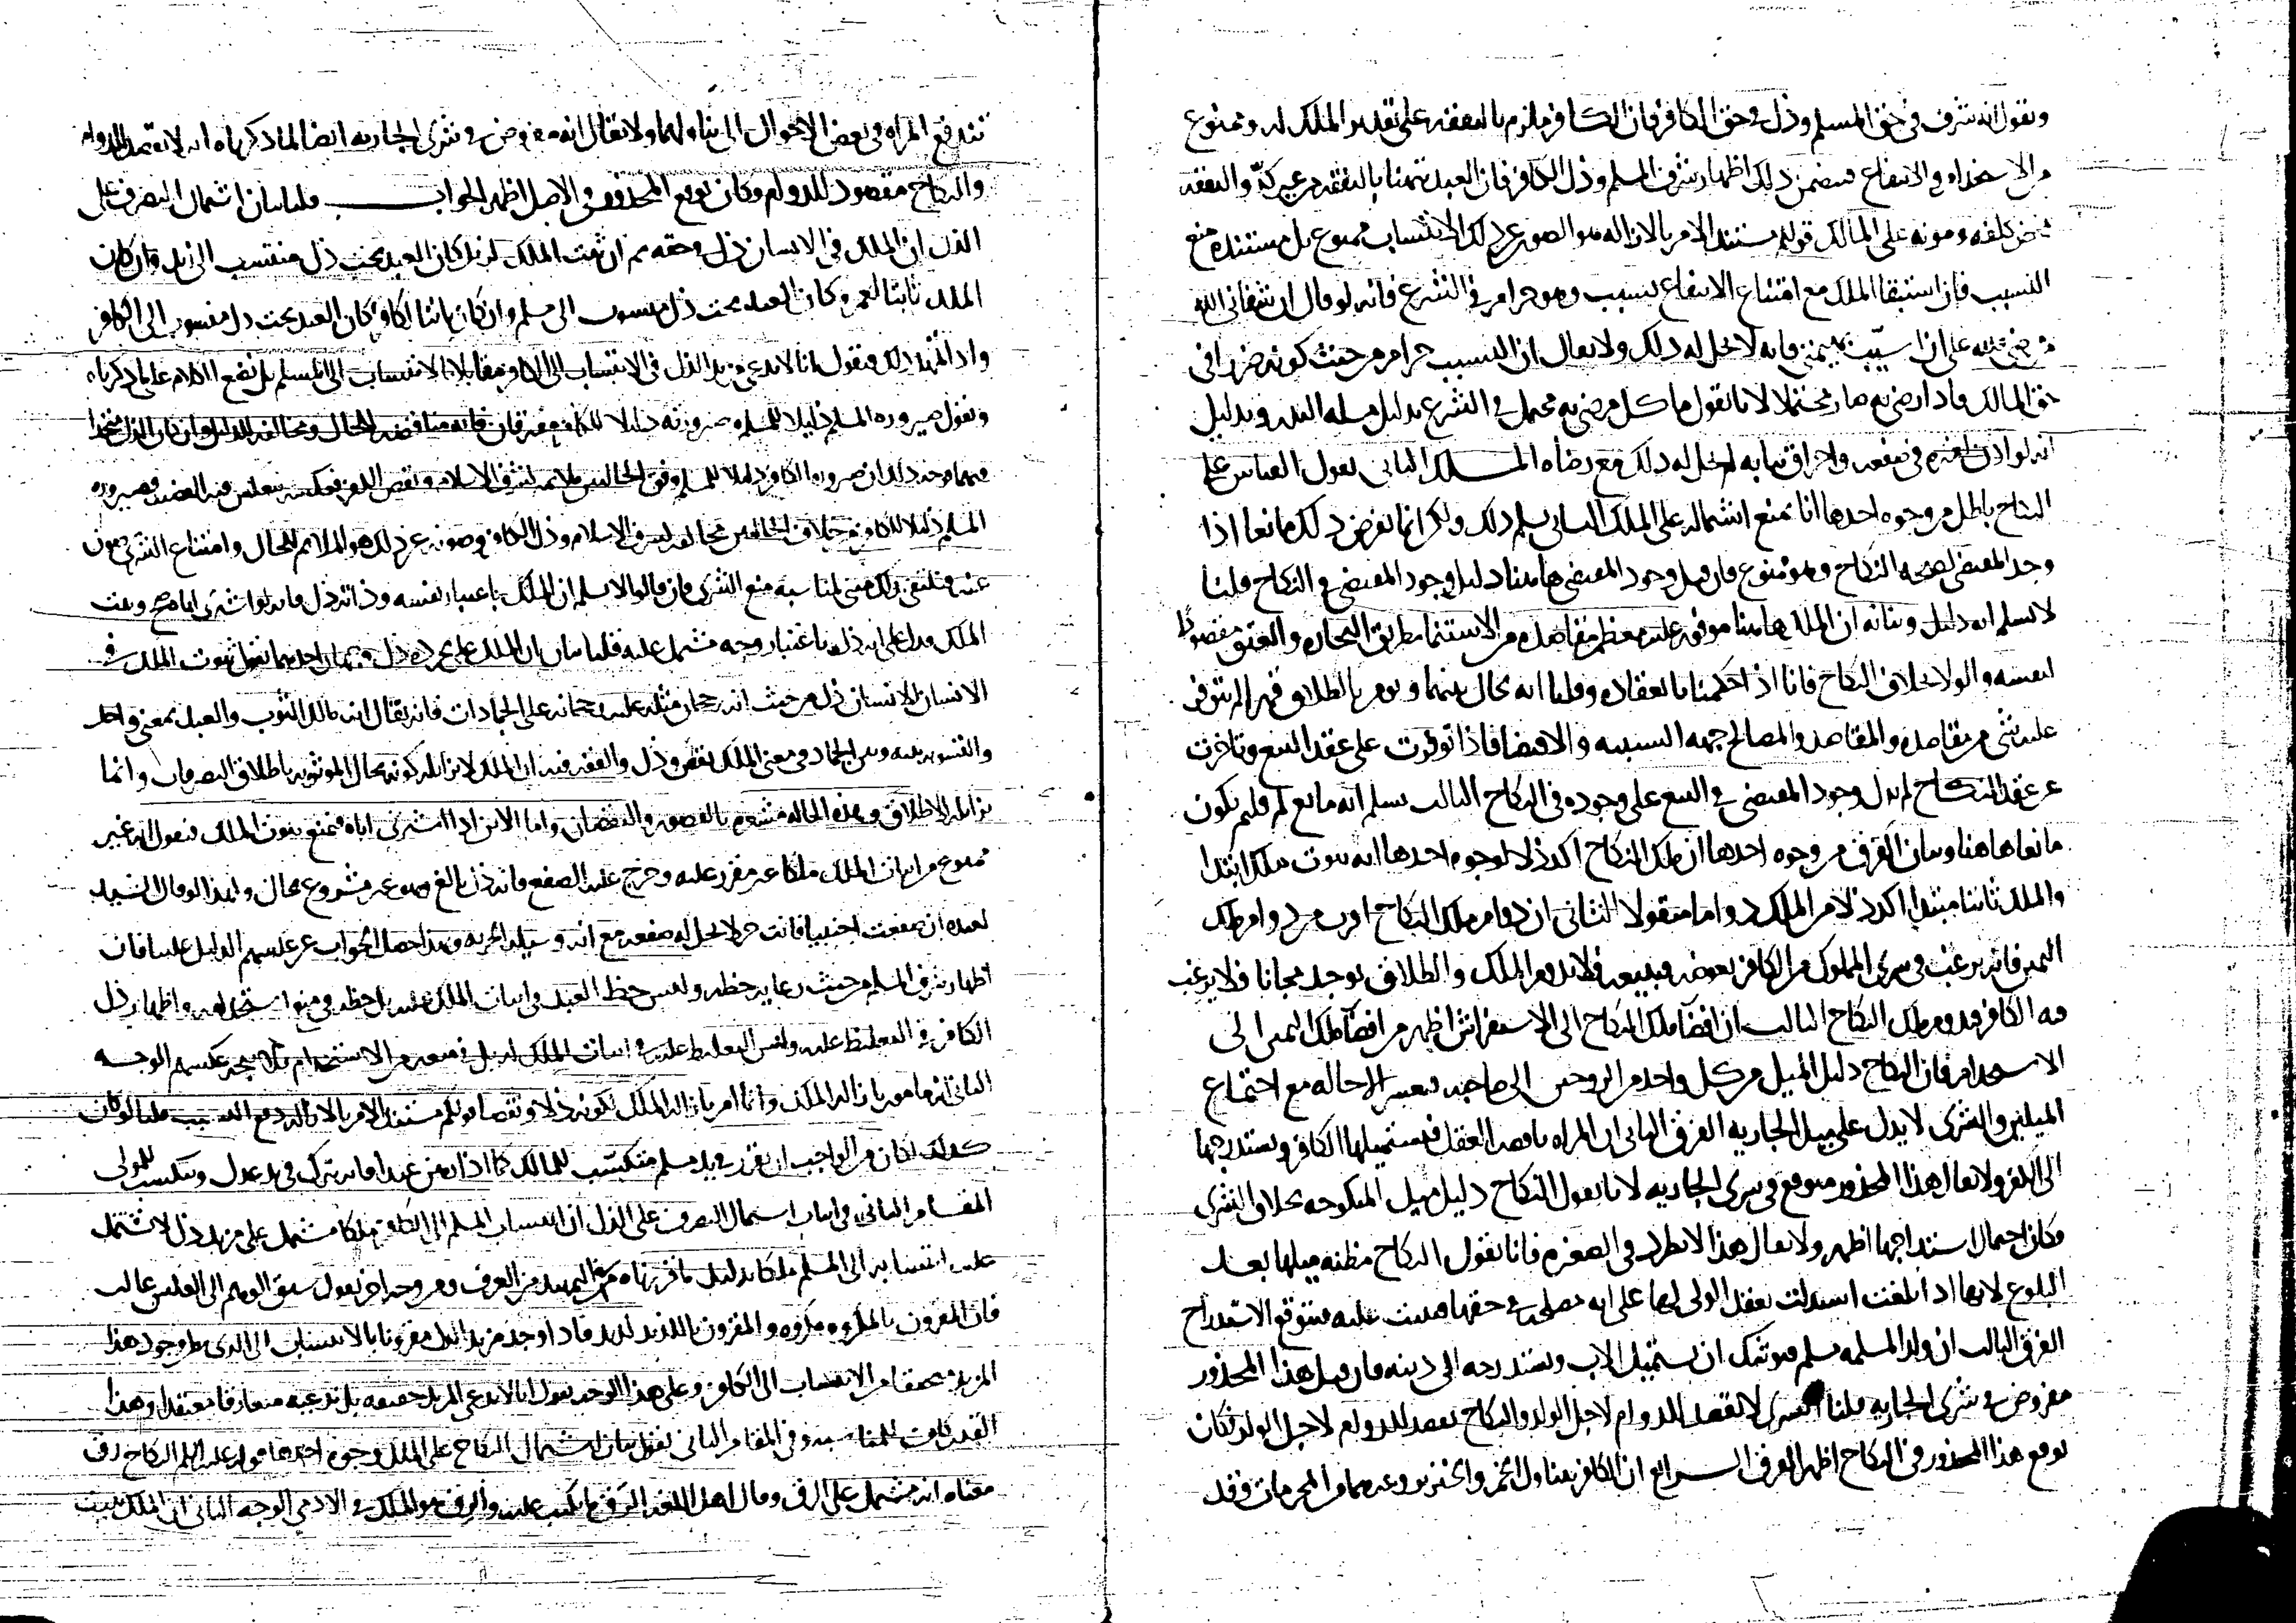 ونقول انه شرف في حق المسلم وذل في حق الكافر فان الكافر ملزم بالنفقه على تقدير الملك له وممنوع
من الاستخدام والانتفاع فيتضمن ذلك اظهار شرف المسلم وذل الكافر فان العبد يتهنا بالنفقه من غير كد والنفقه
كلفه ومونه على المالك قولهم مستند الامر بالازاله هو الصون عن ذلك الانتساب ممنوع بل مستنده منع
التسبب فان استبقا الملك مع امتناع الانتفاع تسبب وهو حرام في الشرع فانه لو قال ان شفاني الله
على ان اسيب فانه لا يحل له ذلك ولا يقال ان التسبب حرام من حيث كونه ضررا في
حق المالك فاذا رضي به صار محتملا لانا نقول ما كل مرضي به محتمل في الشرع بدليل مسله وبدليل
انه لو اذن لغيره في صفعه واحراق ثيابه لم يحل له ذلك مع رضاه المسلك الثاني نقول القياس على
النكاح باطل من وجوه احدها انا نمنع اشتماله على الملك الثاني نسلم ذلك ولكن انما نفرض ذلك مانعا اذا
وجد المقتضي لصحه النكاح وهو ممنوع فان قيل وجود المقتضي هاهنا دليل وجود المقتضي في النكاح قلنا
لا نسلم انه دليل وبيانه ان الملك هاهنا موفر عليه معظم مقاصده من الاستنما بطريق التجاره والعتق مقصودا
لنفسه والولا بخلاف النكاح فانا اذا حكمنا بانعقاده وقلنا انه يحال بينهما ويومر بالطلاق فهر لم يتوفر
عليه شي من مقاصده والمقاصد والمصالح جهه السببيه والاقتضا فاذا توفرت على عقد البيع وتاخرت
عن عقد النكاح لم يدل وجود المقتضي في البيع على وجوده في النكاح الثالث نسلم انه مانع ثم فلم يكون
مانعا هاهنا وبيان الفرق من وجوه احدها ان ملك النكاح اكد ذلا لوجوه احدها انه ثبوت ملك ابتدا
والملك ثابتا مبتدا اكد ذلا من الملك دواما منقولا الثاني ان دوام ملك النكاح اقرب من دوام ملك
اليمين فانه يرغب في شرى المملوك من الكافر بعوضه فيبيعه فلا يدوم الملك والطلاق يوجد مجانا فلا يرغب
فيه الكافر فيدوم ملك النكاح الثالث ان افضا ملك النكاح الى الاستفراش اظهر من افضا ملك اليمين الى
الاستخدام فان النكاح دليل الميل من كل واحد من الزوجين الى صاحبه فيعسر الاحاله مع اجتماع
الميلين والشرى لا يدل على ميل الجاريه الفرق الثاني ان المراه ناقصه العقل فيستميلها الكافر ويستدرجها
الى الكفر ولا يقال هذا المحذور متوقع في شرى الجاريه لانا نقول النكاح دليل ميل المنكوحه بخلاف الشرى
وكان احتمال استدراجها اظهر ولا يقال هذا لا يطرد في الصغيره فانا نقول النكاح مظنه ميلها بعد
البلوغ لانها اذا بلغت استدلت بعقد الولي لها على انه مصلحه في حقها فبنت عليه فيتوقع الاستدراج
الفرق الثالث ان ولد المسلمه مسلم فيوشك ان يستميل الاب ويستدرجه الى دينه فان قيل هذا المحذور
مفروض في شرى الجاريه قلنا الشرى لا يقصد للدوام لاجل الولد والنكاح يقصد للدوام لاجل الولد فكان
توقع هذا المحذور في النكاح اظهر الفرق الرابع ان الكافر يتناول الخمر والخنزير وغيرهما من المحرمات وقد
تندفع المراه في بعض الاحوال الى تناولهما ولا يقال انه مفروض في شرى الجاريه ايضا لما ذكرناه انه لا يقصد للدوام
والنكاح مقصود للدوام وكان توقع المحذور في الاصل اظهر الجواب قلنا بيان اشتمال التصرف على
الذل ان الملك في الانسان ذل في حقه ثم ان ثبت الملك لزيد كان العبد تحت ذل منتسب الى زيد وان كان
الملك ثابتا لعمرو كان العبد تحت ذل منسوب الى مسلم وان كان ثابتا لكافر كان العبد تحت ذل منسوب الى الكافر
واذا ثبت ذلك فنقول انا لا ندعي مزيد الذل في الانتساب الى الكافر مقابلا بالانتساب الى المسلم بل نضع الكلام على ما ذكرناه
ونقول صيروره المسلم ذليلا للمسلم وصيرورته ذليلا للكافر مفترقان فانه مناقضه للحال ومخالفه للدليل وان كان الذل متحدا
فيهما وجد ذلك ان صيروره الكافر ذليلا للمسلم وفق الحالتين ملايمه لشرف الاسلام ونقص الكفر وصيروره
المسلم ذليلا للكافر بخلاف الحالتين مخالفه لشرف الاسلام وذل الكافر وصونه عن ذلك هو الملايم للحال وامتناع الشرى صون
عنه فيلتقي ذلك معنى لمناسبه منع الشرى فان قالوا لا نسلم ان الملك باعتبار نفسه وذاته ذل فانه لو اشترى اباه صح ويثبت
الملك فدل على انه ذل باعتبار وجه مشتمل عليه قلنا بيان ان الملك على تجرده ذل وجهان احدهما نقول ثبوت الملك في
الانسان للانسان ذل من حيث انه رجحان مثله عليه رجحانه على الجمادات فانه يقال انه مالك الثوب والعبد بمعنى واحد
والتسويه بينه وبين الجماد في معنى الملك نقص وذل والفقه فيه ان الملك لا يزايله كونه بحال الموثوبه باطلاق التصرفات وانما
يزايله الاطلاق وهذه الحاله مشعره بالقصور والنقصان واما الابن اذا اشترى اباه فنمنع ثبوت الملك فنقول انه غير
ممنوع من اثبات الملك ملكا غير مقرر عليه وخرج عليه الصفع فانه ذل بالغ وهو غير مشروع بحال ولهذا لو قال السيد
لعبده ان صفعت اجنبيا فانت حر لا يحل له صفعه مع انه وسيله الحريه وبهذا حصل الجواب عن عكسهم الدليل علينا فان
اظهار شرف المسلم من حيث رعايه حظه وليس حظ العبد في اثبات الملك عليه بل حظه في منع استعماله واظهار ذل
الكافر في التغليظ عليه وليس التغليظ عليه في اثبات الملك له بل في منعه من الاستخدام عكسهم الوجه
الثاني انه مامور بازاله الملك وانما امر بازاله الملك لكونه ذلا ونقصا قولهم مستند الامر بالازاله دفع التسبب قلنا لو كان
كذلك لكان من الواجب ان يقرر في يد مسلم متكسب للمالك كما اذا رهن عبدا فانه يترك في يد عدل ويتكسب للمولى
المقام الثاني في اثبات اشتمال التصرف على الذل ان انتساب المسلم الى الكافر ملكا مشتمل على مزيد ذل لا يشتمل
عليه انتسابه الى المسلم ملكا بدليل ما قررناه من العرف ومن وجه اخر نقول سبق الوهم الى العكس غالب
فان المقرون بالمكروه مكروه والمقرون باللذيذ لذيذ فاذا وجد مزيد الذل مقرونا بالانتساب الى الذي ظن وجود هذا
المزيد متحققا من الانتساب الى الكافر وعلى هذا الوجه نقول انا لا ندعي المزيد حقيقه بل ندعيه متعارفا معتقدا وهذا
القدر كاف للمناسبه وفي المقام الثاني نقول بيان اشتمال النكاح على الملك وجوه احدها قوله عليه السلم النكاح رق
معناه انه مشتمل على الرق وقال اهل اللغه الرق ما يكتب عليه والرق هو الملك في الادمي الوجه الثاني ان الملك يثبت